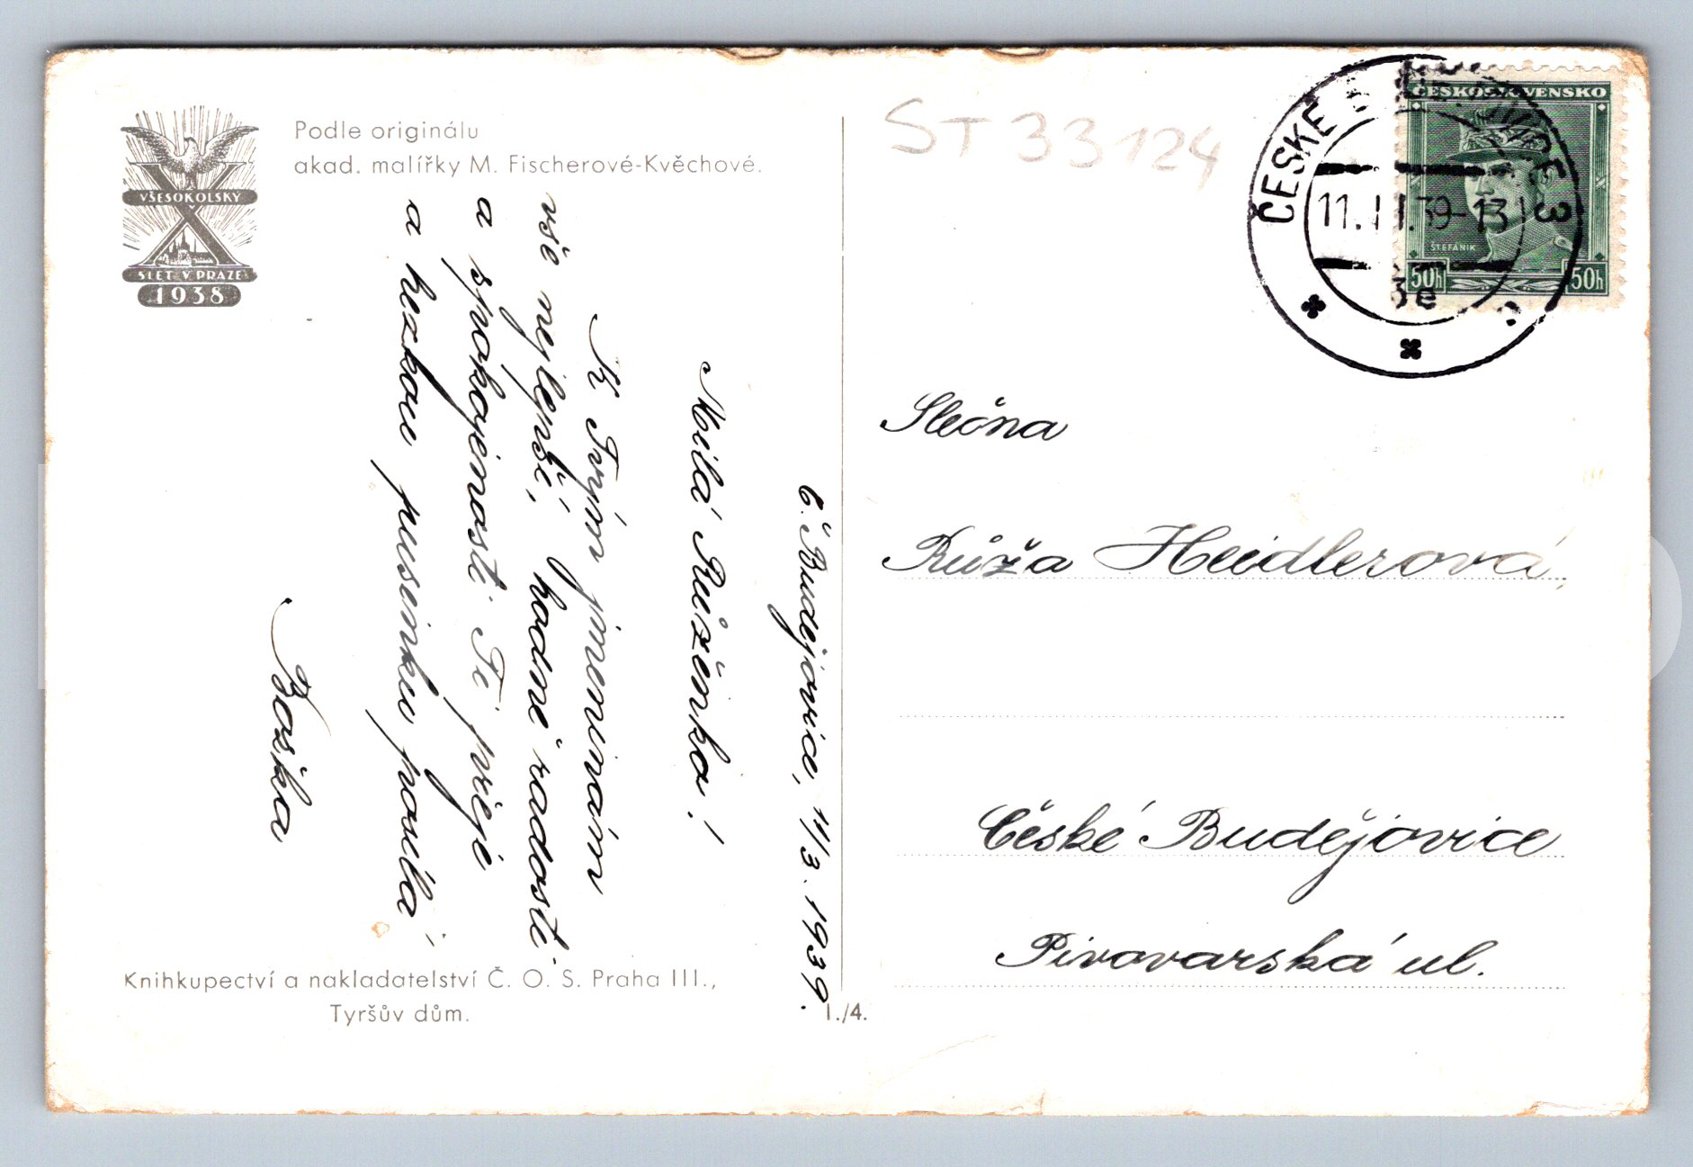 VŠESOKOLSKÝ
X
SLET V PRAZE
1938
Podle originálu
akad. malířky M. Fischerové-Kvěchové.
Č. Budějovice, 11/3. 1939.
Milá Růženko!
K Tvým jmeninám
vše nejlepší, hodně radosti
a spokojenosti Ti přeje
a hezkou pusinku posílá
Boška
Knihkupectví a nakladatelství Č. O. S. Praha III.,
Tyršův dům.
1./4.
ST 33124
ČESKOSLOVENSKO
ŠTEFÁNIK
50h 50h
ČESKÉ BUDĚJOVICE 3
11.III.39-13
3e
Slečna
Růža Heidlerová
České Budějovice
Pivovarská ul.